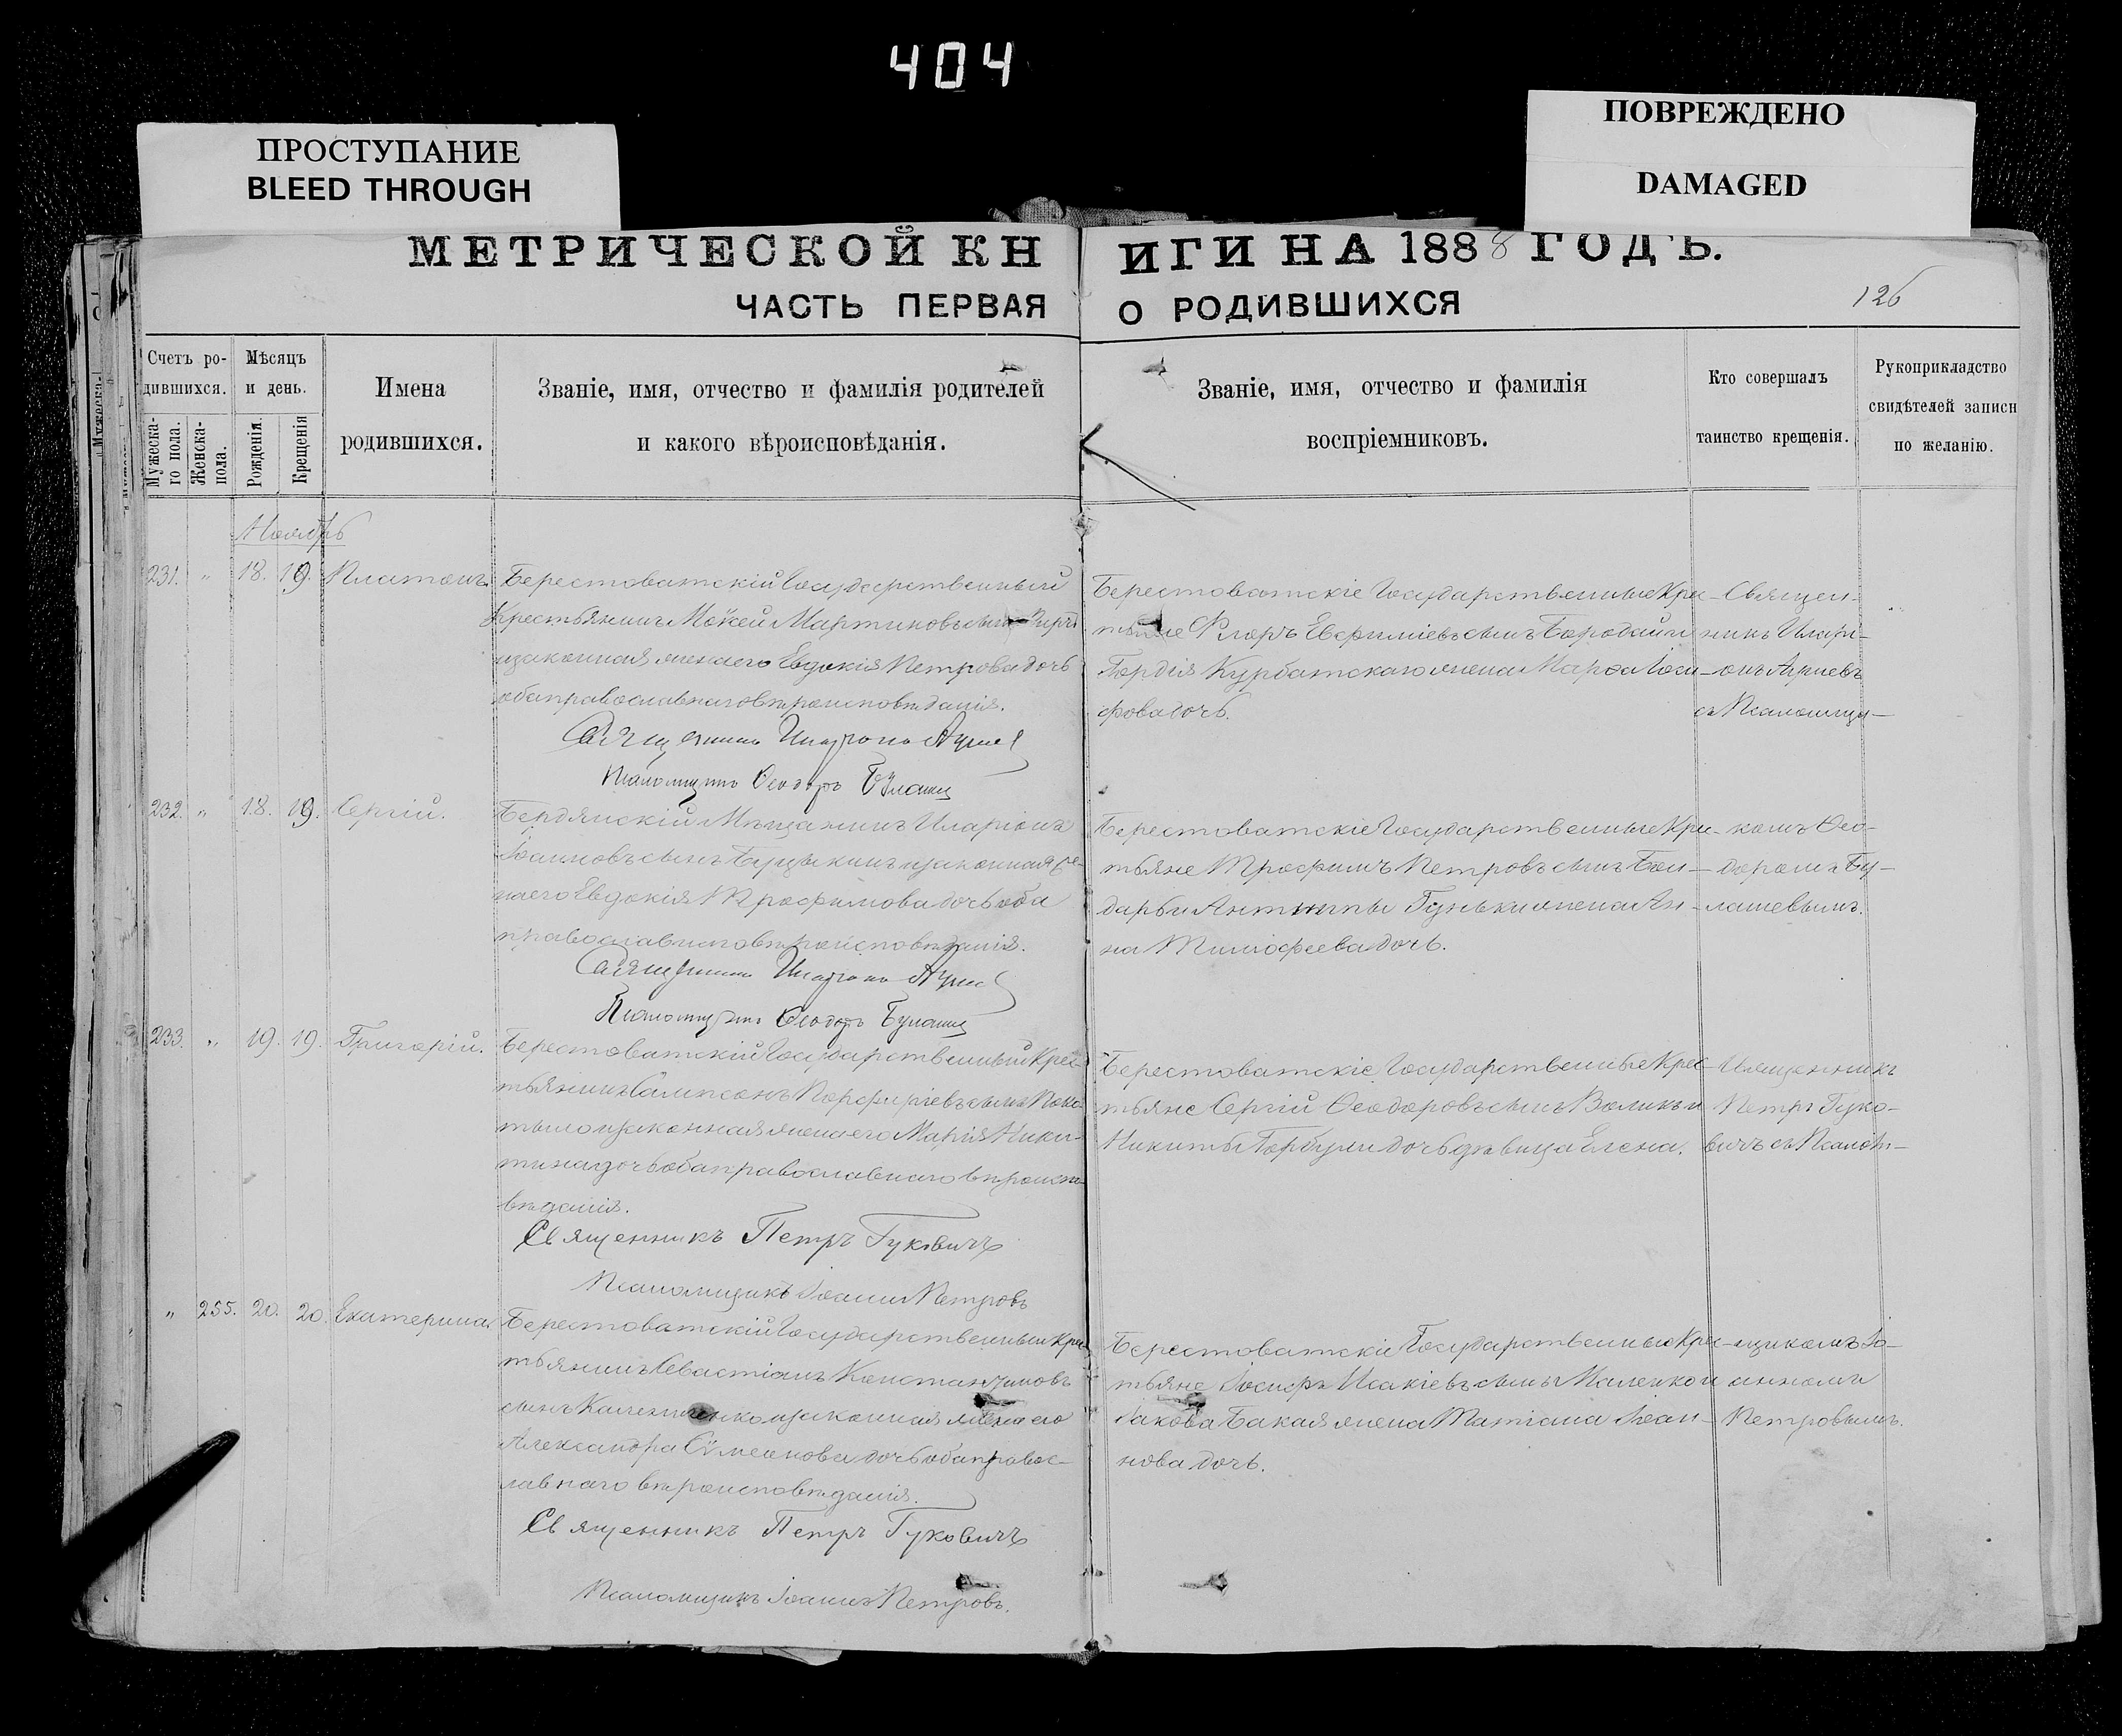 404
ПРОСТУПАНИЕ
BLEED THROUGH
ПОВРЕЖДЕНО
DAMAGED
МЕТРИЧЕСКОЙ КН
ИГИ НА 1888 ГОДЪ.
ЧАСТЬ ПЕРВАЯ
О РОДИВШИХСЯ
126
Счетъ ро-
дившихся.
Мужеска-
го пола.
Женска-
пола.
Мѣсяцъ
и день.
Рожденія.
Крещенія
Имена
родившихся.
Званіе, имя, отчество и фамилія родителей
и какого вѣроисповѣданія.
Званіе, имя, отчество и фамилія
воспріемниковъ.
Кто совершалъ
таинство крещенія.
Рукоприкладство
свидѣтелей записи
по желанію.
Ноябрь
231. " 18. 19. Платонъ.
Берестоватскій Государственный
Крестьянинъ Мокей Мартиновъ сынъ
и законная жена его Евдокія Петрова дочь
оба православнаго вѣроисповѣданія.
Священникъ Иларіонъ
Псаломщикъ Ѳеодоръ
Берестоватскіе Государственные Кре-
стьяне Флоръ Евфиміевъ сынъ Бородай и
Гордія Курбатскаго жена Марѳа Іоси-
фова дочь.
Священ-
никъ Илари-
онъ
съ Псаломщи-
232. " 18. 19. Сергій.
Бердянскій Мѣщанинъ Иларіонъ
Іоанновъ сынъ и законная же-
на его Евдокія Трофимова дочь оба
православнаго вѣроисповѣданія.
Священникъ Иларіонъ
Псаломщикъ Ѳеодоръ
Берестоватскіе Государственные Кре-
стьяне Трофимъ Петровъ сынъ Бон-
дарь и Антипы Гуньки жена Ан-
на Тимофеева дочь.
комъ Ѳео-
доромъ Бу-
лашевымъ.
233. " 19. 19. Григорій.
Берестоватскій Государственный Крес-
тьянинъ Сампсонъ Порфиріевъ сынъ
и законная жена его Марія Ники-
тина дочь оба православнаго вѣроиспо-
вѣданія.
Священникъ Петръ Гуковичъ
Псаломщикъ Іоаннъ Петровъ
Берестоватскіе Государственные Крес-
тьяне Сергій Ѳеодоровъ сынъ Воликъ и
Никиты Горбули дочь дѣвица Елена.
Священникъ
Петръ Гуко-
вичъ съ Псалом-
" 255. 20. 20. Екатерина.
Берестоватскій Государственный Крес-
тьянинъ Севастіанъ Константиновъ
сынъ и законная жена его
Александра Сѵмеонова дочь оба правос-
лавнаго вѣроисповѣданія.
Священникъ Петръ Гуковичъ
Псаломщикъ Іоаннъ Петровъ.
Берестоватскіе Государственные Крес-
тьяне Іосифъ Исакіевъ сынъ Маленко и
Іакова Бакая жена Татіана Іоан-
нова дочь.
щикомъ Іо-
анномъ
Петровымъ.